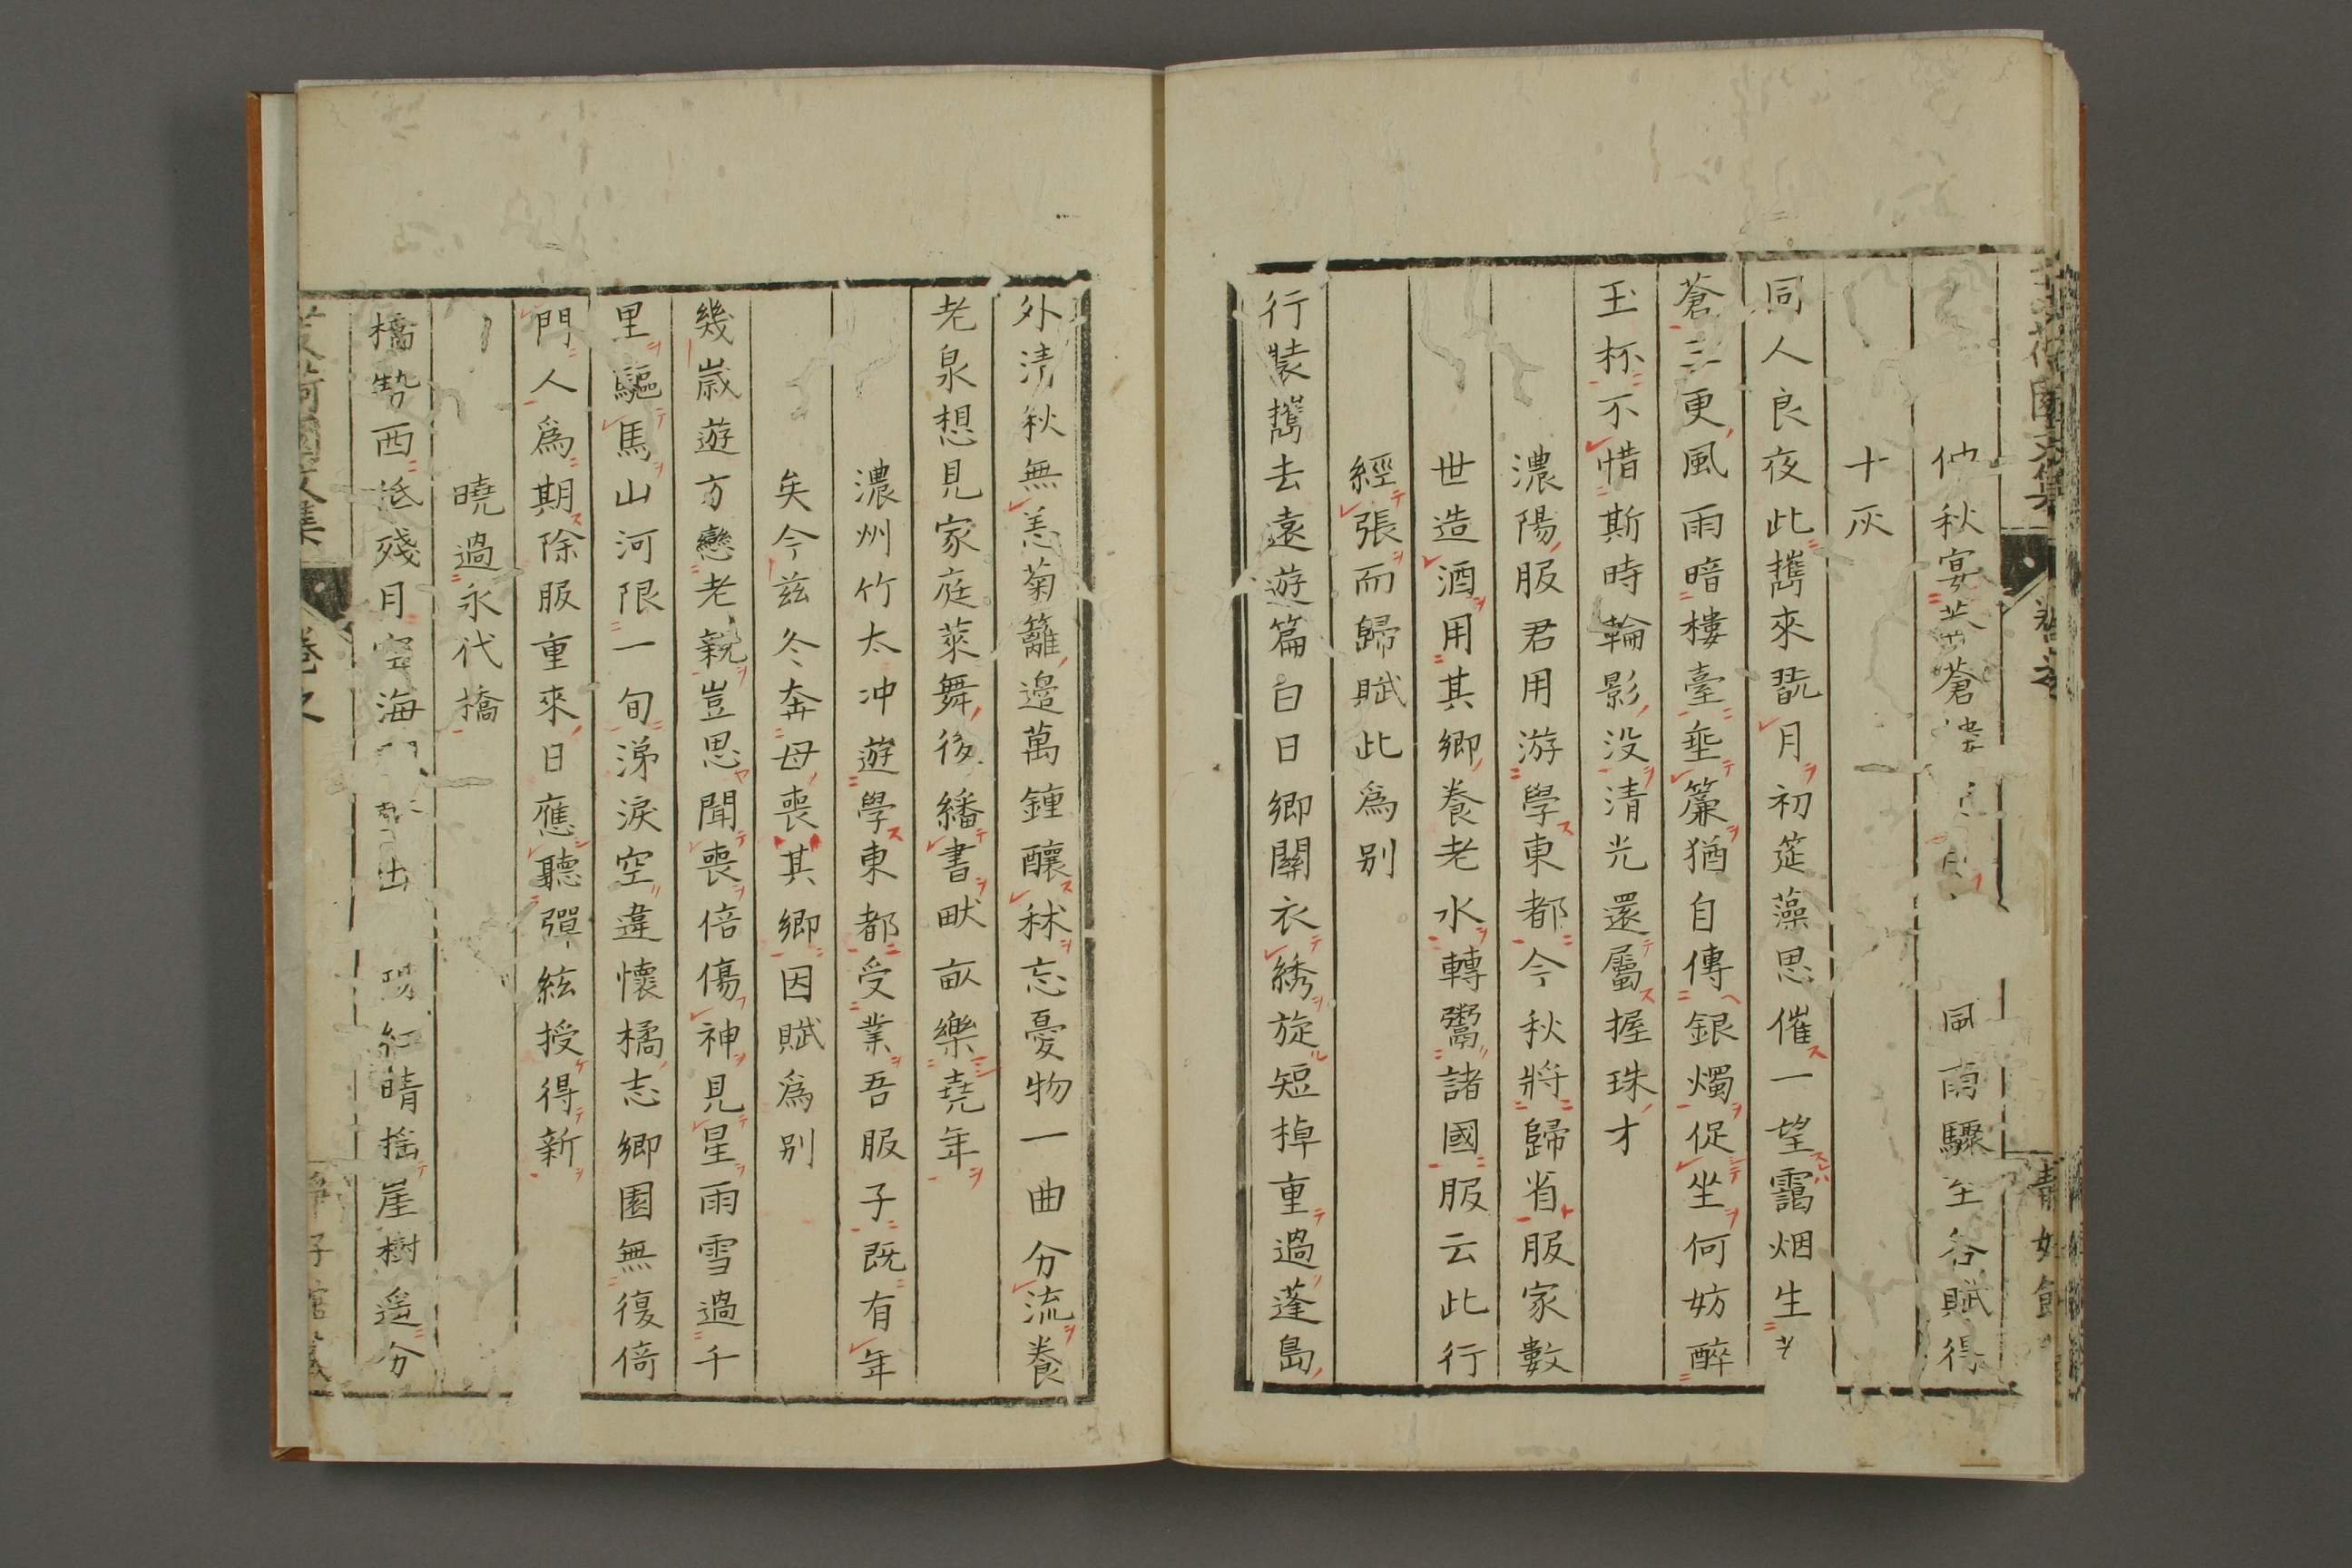 仲秋宴芙蒼樓風雨驟至各賦得
十灰
同人良夜此攜來翫月初筵藻思催一望靄烟生
蒼三更風雨暗樓臺垂簾猶自傳銀燭促坐何妨醉
玉杯不惜斯時輪影没清光還屬握珠才
濃陽服君用游學東都今秋將歸省服家數
世造酒用其鄉養老水轉鬻諸國服云此行
經張而歸賦此爲別
行裝攜去遠遊篇白日鄉關衣綉旋短棹重過蓬島
外清秋無恙菊籬邉萬鍾釀秫忘憂物一曲分流養
老泉想見家庭萊舞後繙書畎畝樂堯年
濃州竹太冲遊學東都受業吾服子既有年
矣今茲冬奔母喪其鄉因賦爲別
幾歲遊方戀老親豈思聞喪倍傷神見星雨雪過千
里驅馬山河限一旬涕淚空違懷橘志鄉園無復倚
門人爲期除服重來日應聽彈絃授得新
曉過永代橋
橋勢西低殘月空海出紅晴搖崖樹遥分